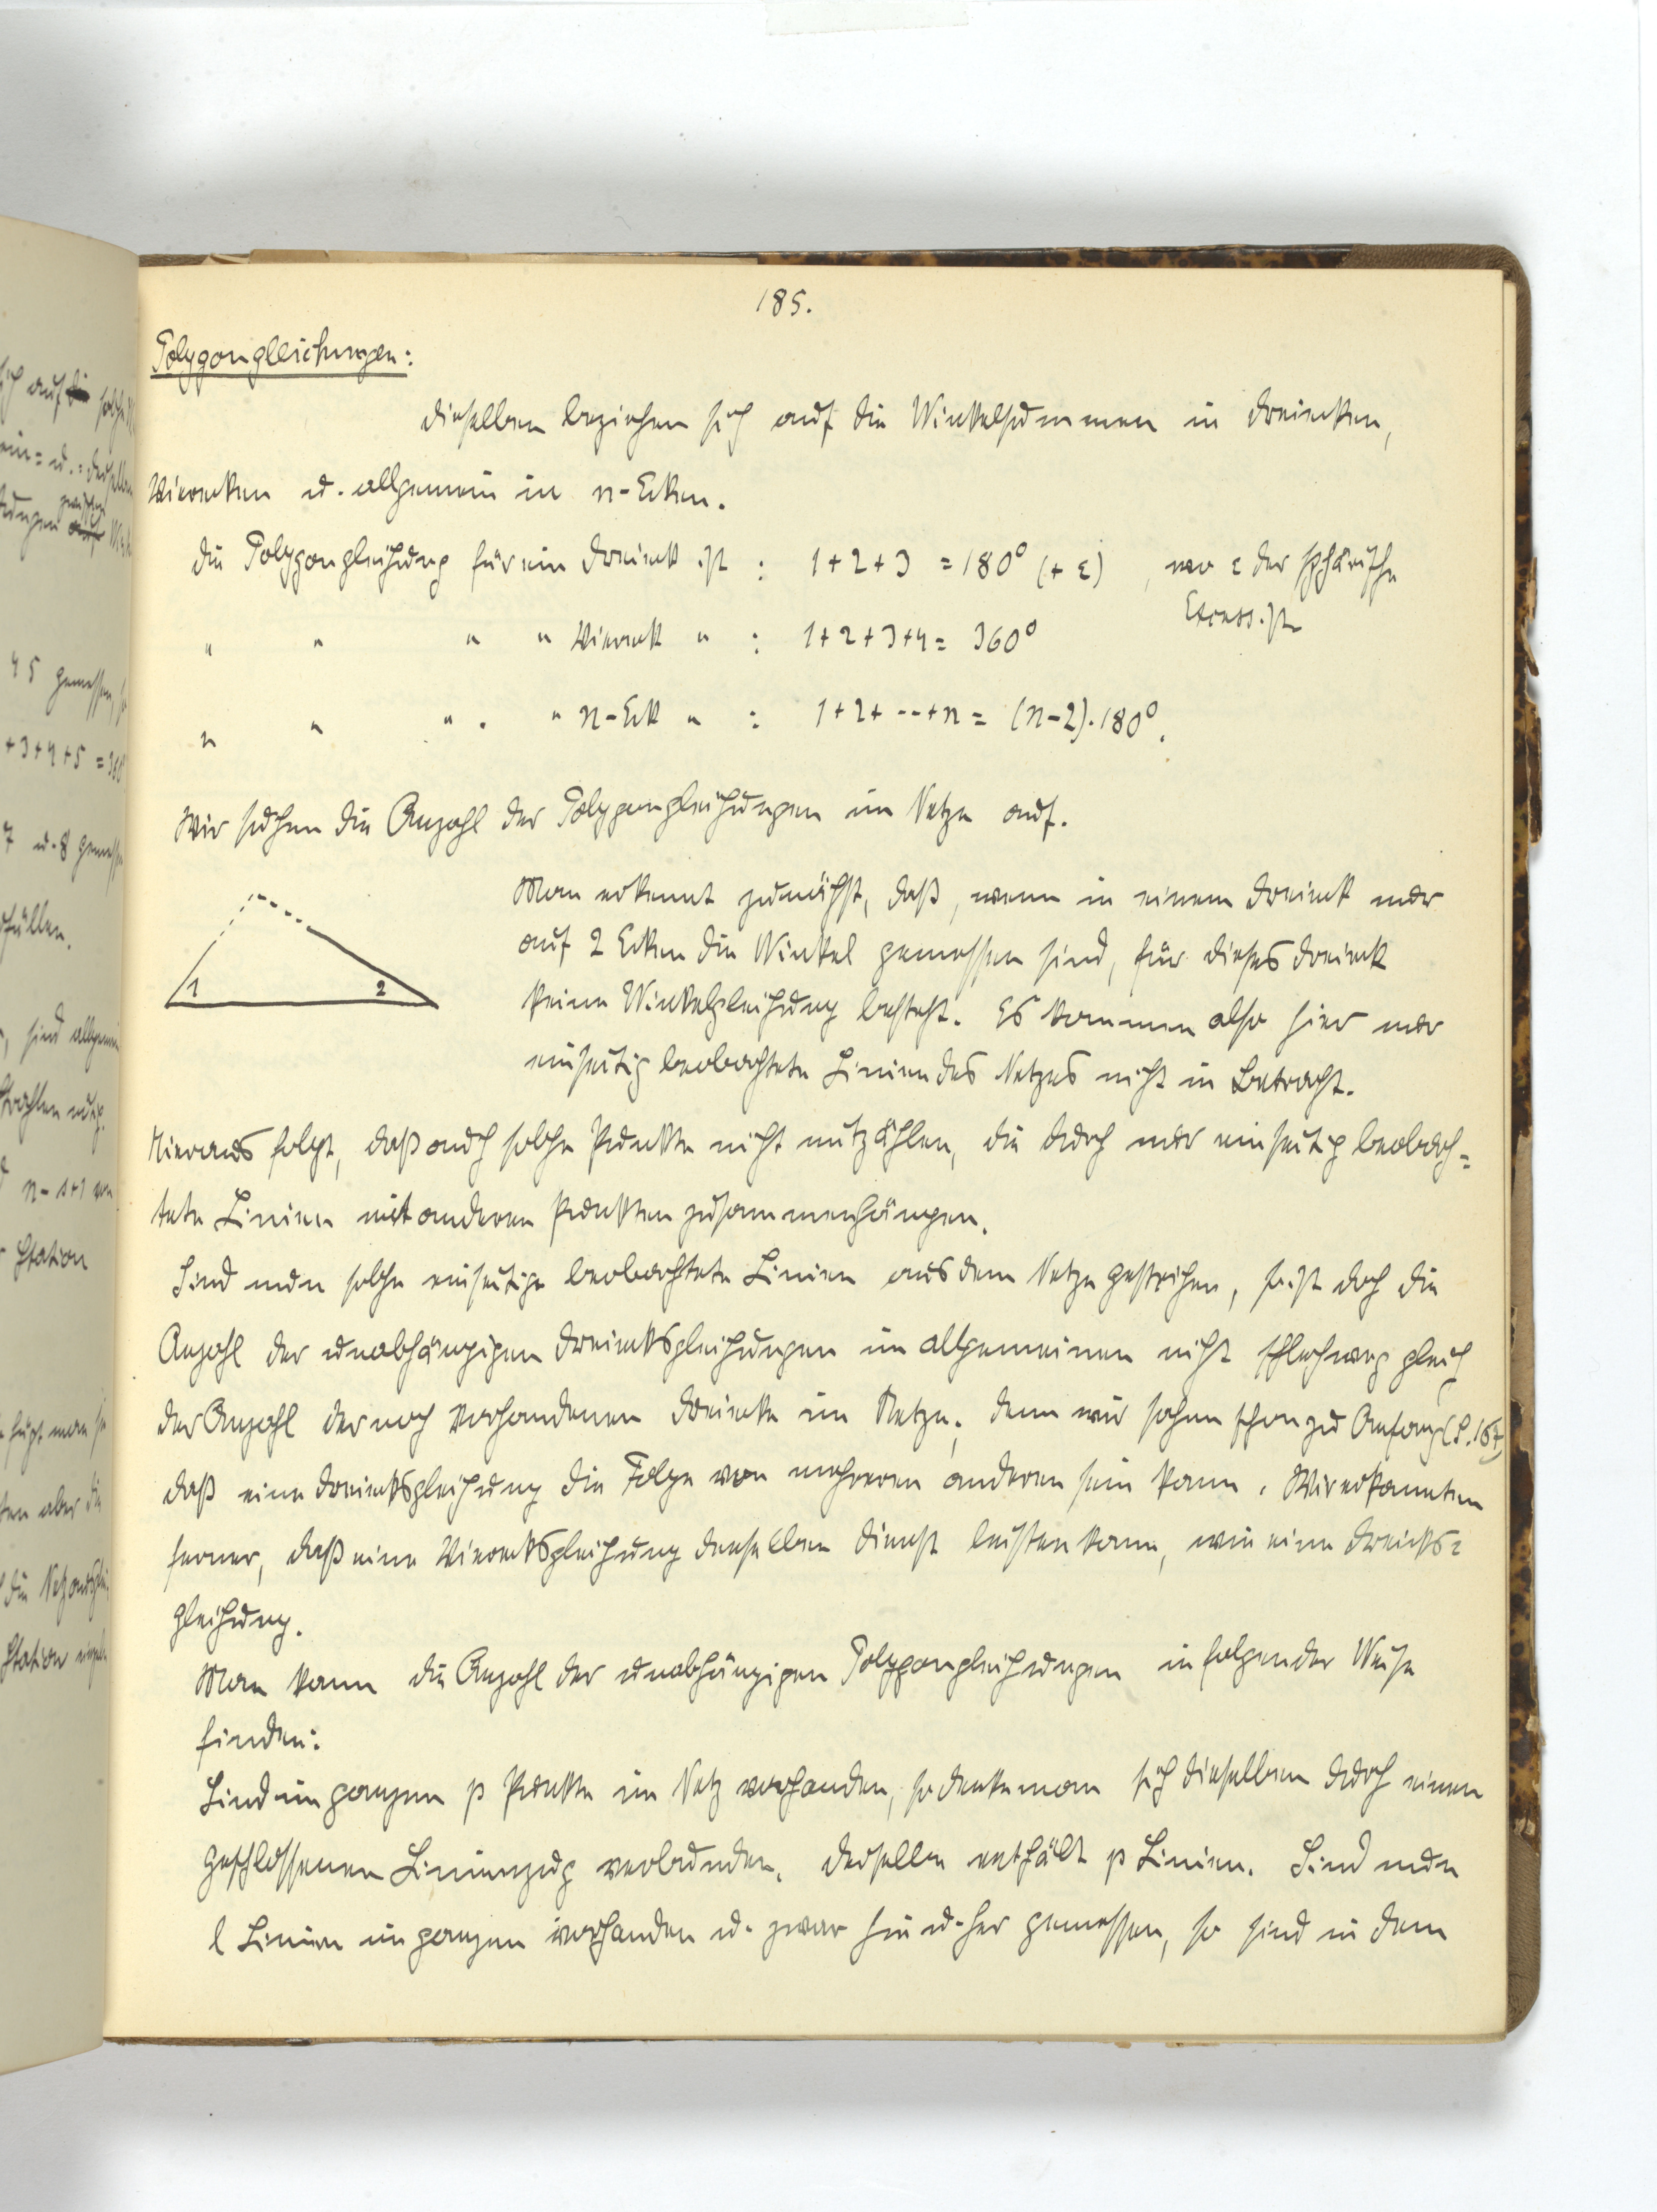 185.
Polygongleichungen:
Dieselben beziehen sich auf die Winkelsummen in Dreiecken,
Vierecken u. allgemein in n-Ecken.
Die Polygongleichung für ein Dreieck ist : 1+2+3 = 180° (+ ε) , wo ε der sphärische
Excess ist
" " " " Viereck " : 1+2+3+4 = 360°
" " " . " n-Eck " : 1+2+ --+n = (n-2).180°.
Wir suchen die Anzahl der Polygongleichungen im Netze auf.
Man erkennt zunächst, daß, wenn in einem Dreieck nur
auf 2 Ecken die Winkel gemessen sind, für dieses Dreieck
keine Winkelgleichung besteht. Es kommen also hier nur
einseitig beobachtete Linien des Netzes nicht in Betracht.
1 2
Hieraus folgt, daß auch solche Punkte nicht mitzählen, die durch nur einseitig beobach=
tete Linien mit anderen Punkten zusammenhängen.
Sind nun solche einseitige beobachtete Linien aus dem Netze gestrichen, so ist doch die
Anzahl der unabhängigen Dreiecksgleichungen im allgemeinen nicht schlechweg gleich
der Anzahl der noch vorhandenen Dreiecke im Netze; denn wir sahen schon zu Anfang (S. 167)
daß eine Dreiecksgleichung die Folge von mehreren anderen sein kann. Wir erkannten
ferner, daß eine Vierecksgleichung denselben Dienst leisten kann, wie eine Dreiecks=
gleichung.
Man kann die Anzahl der unabhängigen Polygongleichungen in folgender Weise
finden:
Sind im ganzen p Punkte im Netz vorhanden, so denke man sich dieselben durch einen
geschlossenen Linienzug verbunden. Derselbe enthält p Linien. Sind nun
l Linien im ganzen vorhanden u. zwar hin u. her gemessen, so sind in dem
sich auf
4 5 gemessen,
+3+4+5 = 360°
7 u. 8 gemesse
füllen.
, sind allgemein
n-s+1
Station
fügt man
ten aber die
Station